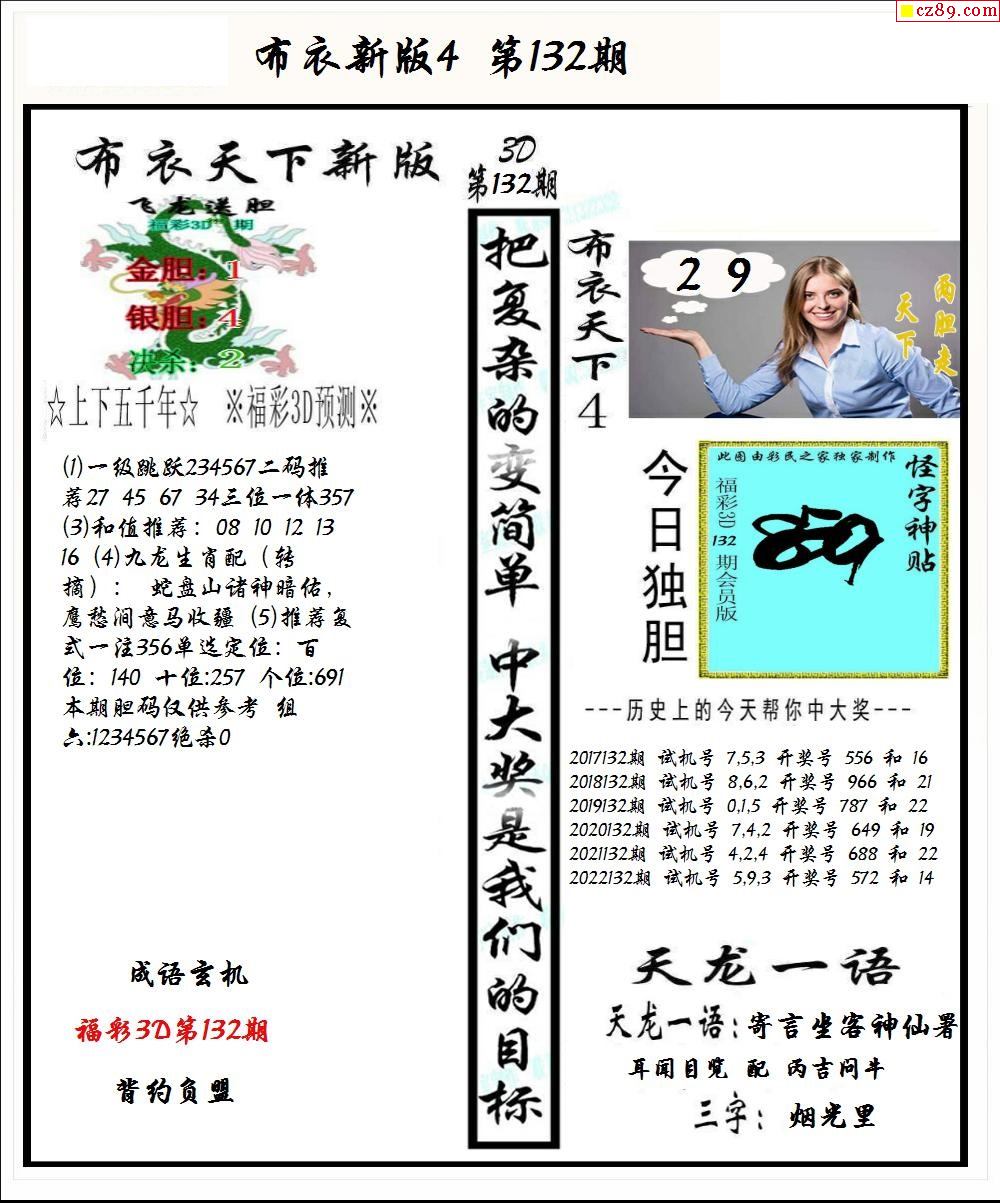 cz89.com
布衣新版4 第132期
布衣天下新版
飞龙送胆
福彩3D 期
金胆：1
银胆：4
决杀：2
☆上下五千年☆ ※福彩3D预测※
(1)一级跳跃234567二码推
荐27 45 67 34三位一体357
(3)和值推荐：08 10 12 13
16 (4)九龙生肖配（转
摘）： 蛇盘山诸神暗佑，
鹰愁涧意马收疆 (5)推荐复
式一注356单选定位：百
位：140 十位:257 个位:691
本期胆码仅供参考 组
六:1234567绝杀0
成语玄机
福彩3D第132期
背约负盟
3D
第132期
把复杂的变简单 中大奖是我们的目标
布衣天下4
2 9
两胆走
天下
今日独胆
此图由彩民之家独家制作
怪字神贴
福彩3D 132 期会员版
---历史上的今天帮你中大奖---
2017132期 试机号 7,5,3 开奖号 556 和 16
2018132期 试机号 8,6,2 开奖号 966 和 21
2019132期 试机号 0,1,5 开奖号 787 和 22
2020132期 试机号 7,4,2 开奖号 649 和 19
2021132期 试机号 4,2,4 开奖号 688 和 22
2022132期 试机号 5,9,3 开奖号 572 和 14
天龙一语
天龙一语：寄言坐客神仙署
耳闻目览 配 丙吉问牛
三字： 烟光里